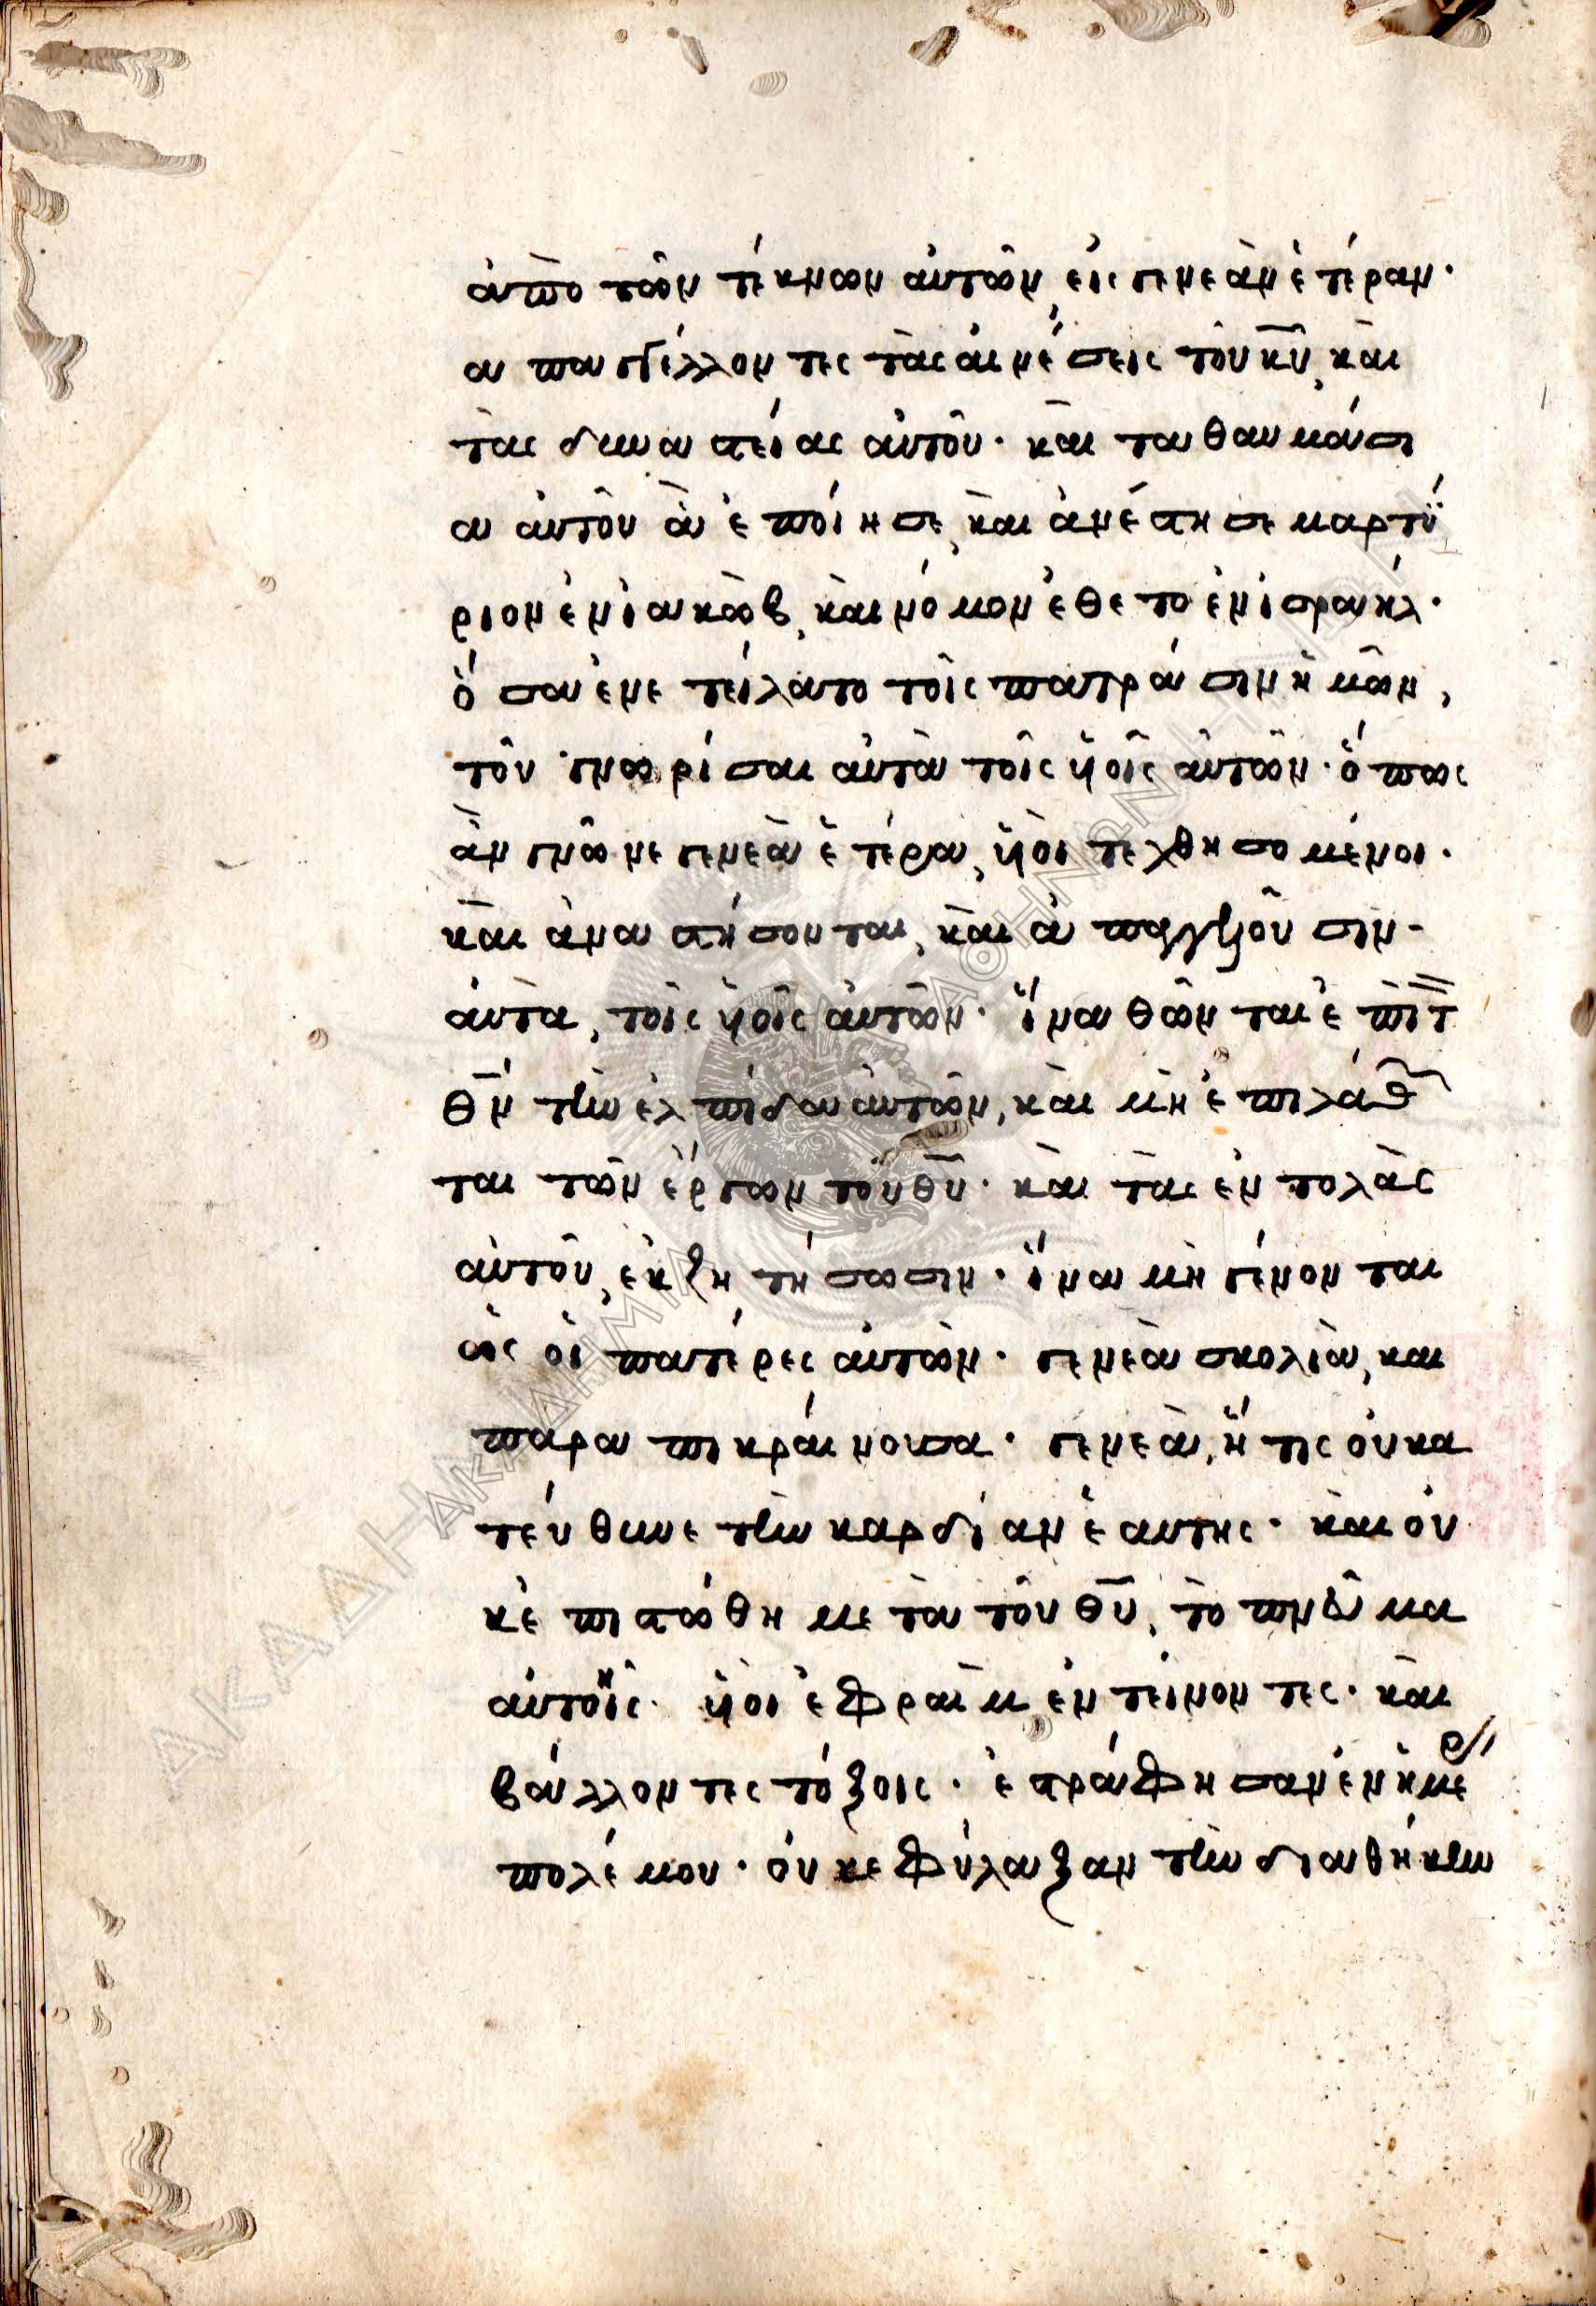 ἀπὸ τῶν τέκνων αὐτῶν, εἰς γενεὰν ἑτέραν·
ἀπαγγέλλοντες τὰς αἰνέσεις τοῦ κυ̅, καὶ
τὰς δυναστείας αὐτοῦ· καὶ τα θαυμάσι
α αὐτοῦ ἃ ἐποίησε, καὶ ἀνέστησε μαρτύ
ριον ἐν ἰακὼβ, καὶ νόμον ἔθετο ἐν ἰσραήλ·
ὅσα ἐνετείλατο τοῖς πατράσιν ἡμῶν,
τοῦ γνωρίσαι αὐτὰ τοῖς ὑιοῖς αὐτῶν· ὅπως
ἂν γνῶ γενεὰ ἑτέρα, ὑιοὶ τεχθησόμενοι·
καὶ ἀναστήσονται, καὶ ἀπαγγελοῦσιν-
αὐτὰ, τοῖς ὑιοῖς αὐτῶν· ἵνα θῶνται ἐπὶ τ
θν̅ τὴν ἐλπίδα αὐτῶν, καὶ μὴ ἐπιλάθ
ται τῶν ἔργων τοῦ θυ̅· καὶ τὰς ἐντολὰς
αὐτοῦ, ἐκζητήσωσιν· ἵνα μὴ γένονται
ὡς οἱ πατέρες αὐτῶν· γενεὰ σκολιὰ, και
παραπικραίνουσα· γενεὰ, ἥτις οὐ κα
τεύθυνε τὴν καρδίαν ἑαυτης· καὶ οὐ
κ ἐπιστώθη μετὰ τοῦ θυ̅, τὸ πνεῦμα
αὐτοῖς· ὑιοὶ ἐφραὶμ, ἐντείνοντες· καὶ
βάλλοντες τόξοις· ἐστράφησαν ἐν ἡμέ
πολέμου· οὐκ ἐφύλαξαν τὴν διαθήκην
ΑΚΑΔΗΜΙΑ ΑΘΗΝΩΝ